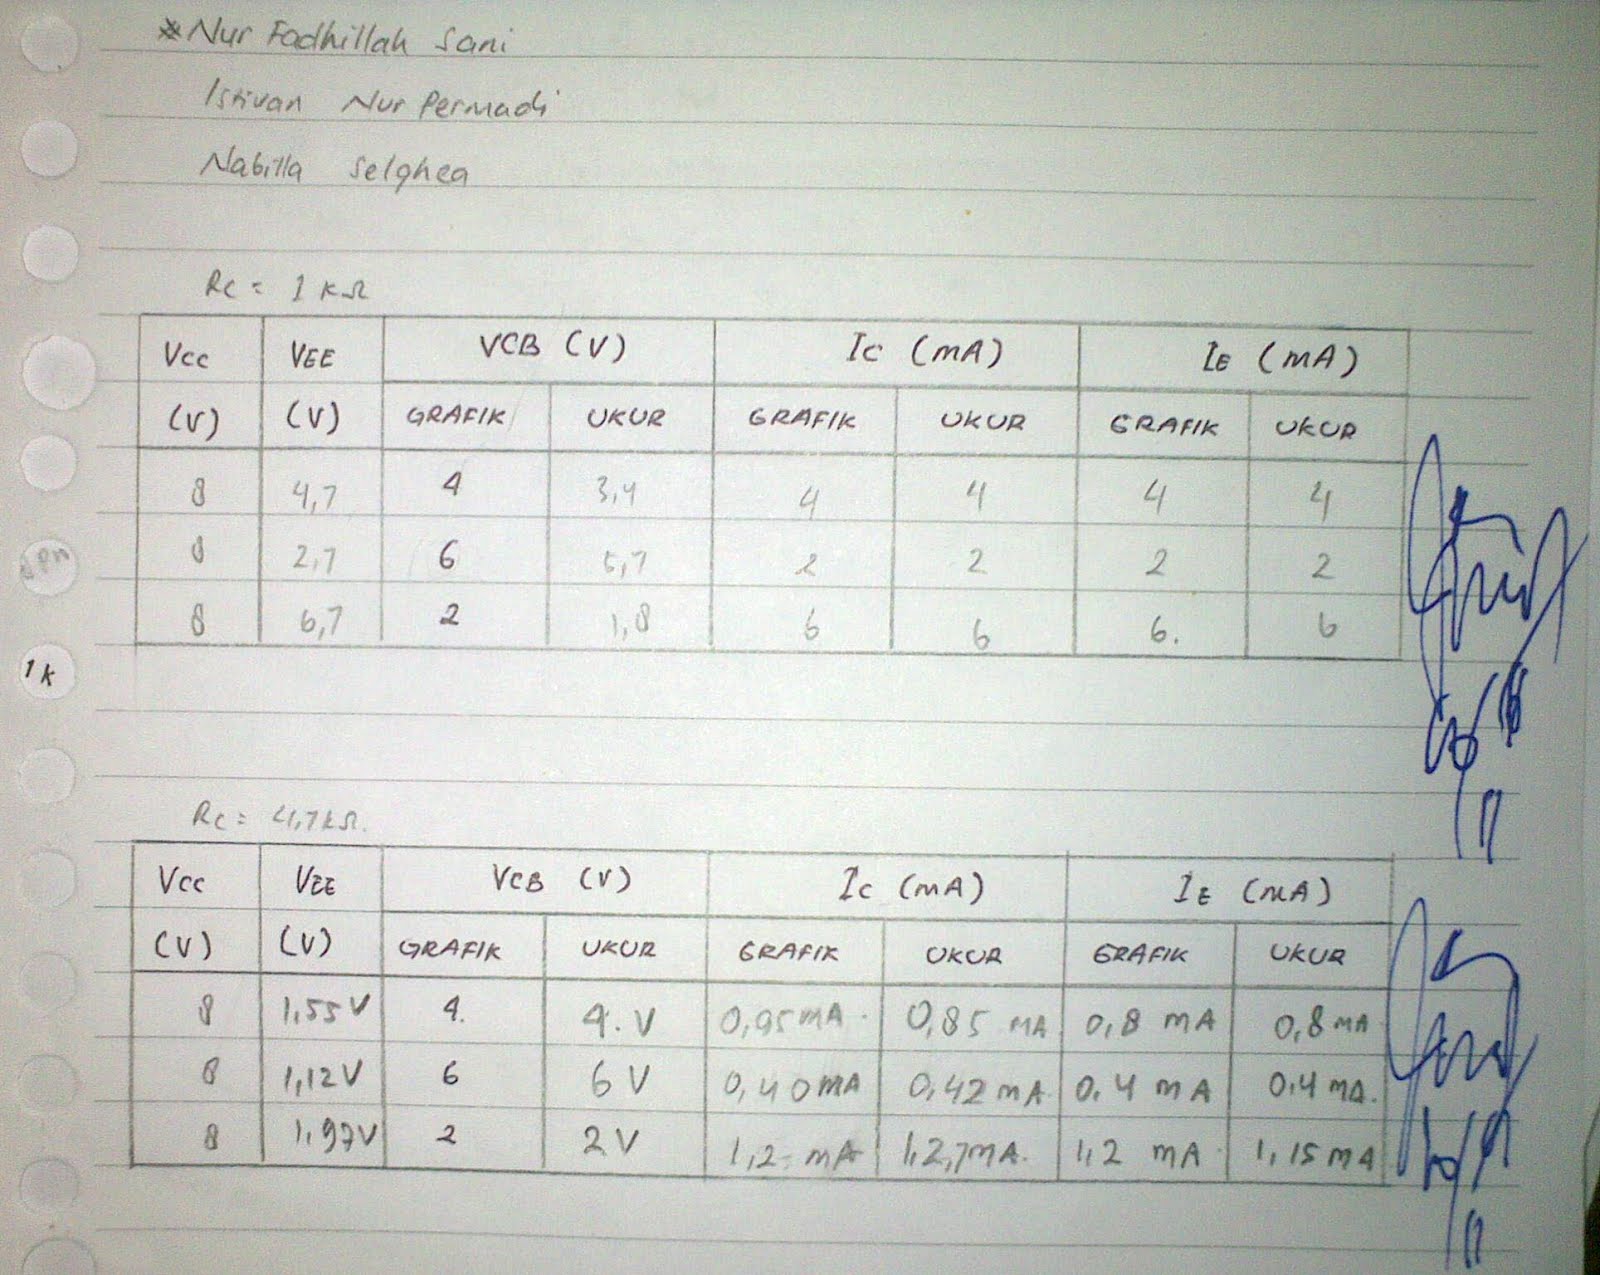 *Nur Fadhillah Sani
Istivan Nur Permadi
Nabilla Selghea
Rc = 1 kΩ
Vcc VEE VCB (V) Ic (mA) IE (mA)
(V) (V) GRAFIK UKUR GRAFIK UKUR GRAFIK UKUR
8 4,7 4 3,4 4 4 4 4
8 2,7 6 5,7 2 2 2 2
8 6,7 2 1,8 6 6 6. 6
1k
Rc = 4,7kΩ.
Vcc VEE VCB (V) Ic (mA) IE (mA)
(V) (V) GRAFIK UKUR GRAFIK UKUR GRAFIK UKUR
8 1,55V 4. 4.V 0,85 mA 0,8 mA 0,8 mA
8 1,12V 6 6V 0,40mA 0,42mA 0,4 mA 0,4 mA.
8 1,97V 2 2V 1,2 mA 1,2,7mA. 1,2 mA 1,15mA